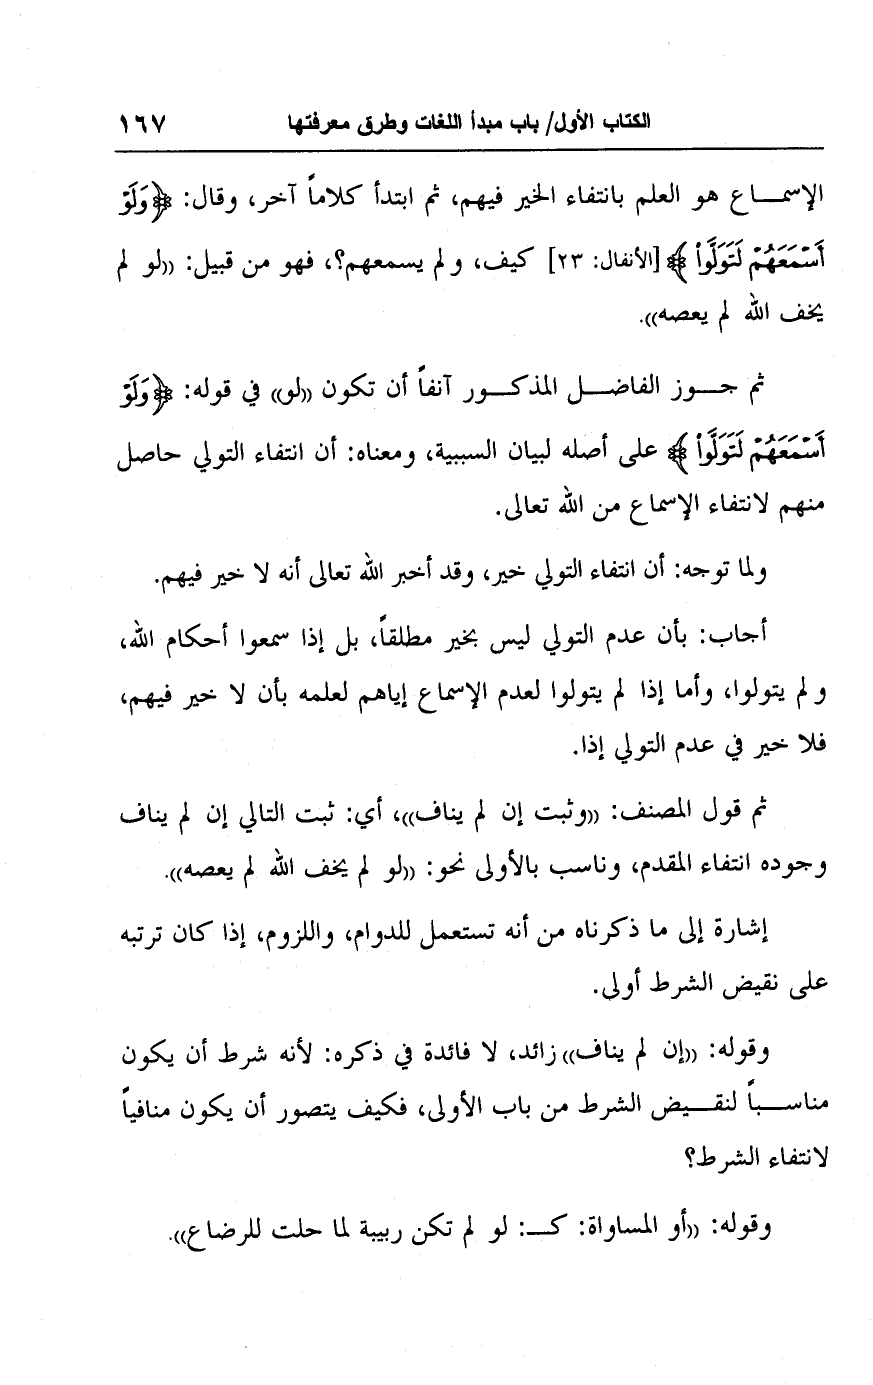 الكتاب الأول/ باب مبدأ اللغات وطرق معرفتها ١٦٧
الإسمـــاع هو العلم بانتفاء الخير فيهم، ثم ابتدأ كلاماً آخر، وقال: ﴿وَلَوْ
أَسْمَعَهُمْ لَتَوَلَّوا﴾ [الأنفال: ٢٣] كيف، ولم يسمعهم؟، فهو من قبيل: ((لو لم
يخف الله لم يعصه)).
ثم جـــوز الفاضـــل المذكـــور آنفاً أن تكون ((لو)) في قوله: ﴿وَلَوْ
أَسْمَعَهُمْ لَتَوَلَّوا﴾ على أصله لبيان السببية، ومعناه: أن انتفاء التولي حاصل
منهم لانتفاء الإسماع من الله تعالى.
ولما توجه: أن انتفاء التولي خير، وقد أخبر الله تعالى أنه لا خير فيهم.
أجاب: بأن عدم التولي ليس بخير مطلقاً، بل إذا سمعوا أحكام الله،
ولم يتولوا، وأما إذا لم يتولوا لعدم الإسماع إياهم لعلمه بأن لا خير فيهم،
فلا خير في عدم التولي إذا.
ثم قول المصنف: ((وثبت إن لم يناف))، أي: ثبت التالي إن لم يناف
وجوده انتفاء المقدم، وناسب بالأولى نحو: ((لو لم يخف الله لم يعصه)).
إشارة إلى ما ذكرناه من أنه تستعمل للدوام، واللزوم، إذا كان ترتبه
على نقيض الشرط أولى.
وقوله: ((إن لم يناف)) زائد، لا فائدة في ذكره: لأنه شرط أن يكون
مناســـباً لنقـــيض الشرط من باب الأولى، فكيف يتصور أن يكون منافياً
لانتفاء الشرط؟
وقوله: ((أو المساواة: كـــ: لو لم تكن ربيبة لما حلت للرضاع)).